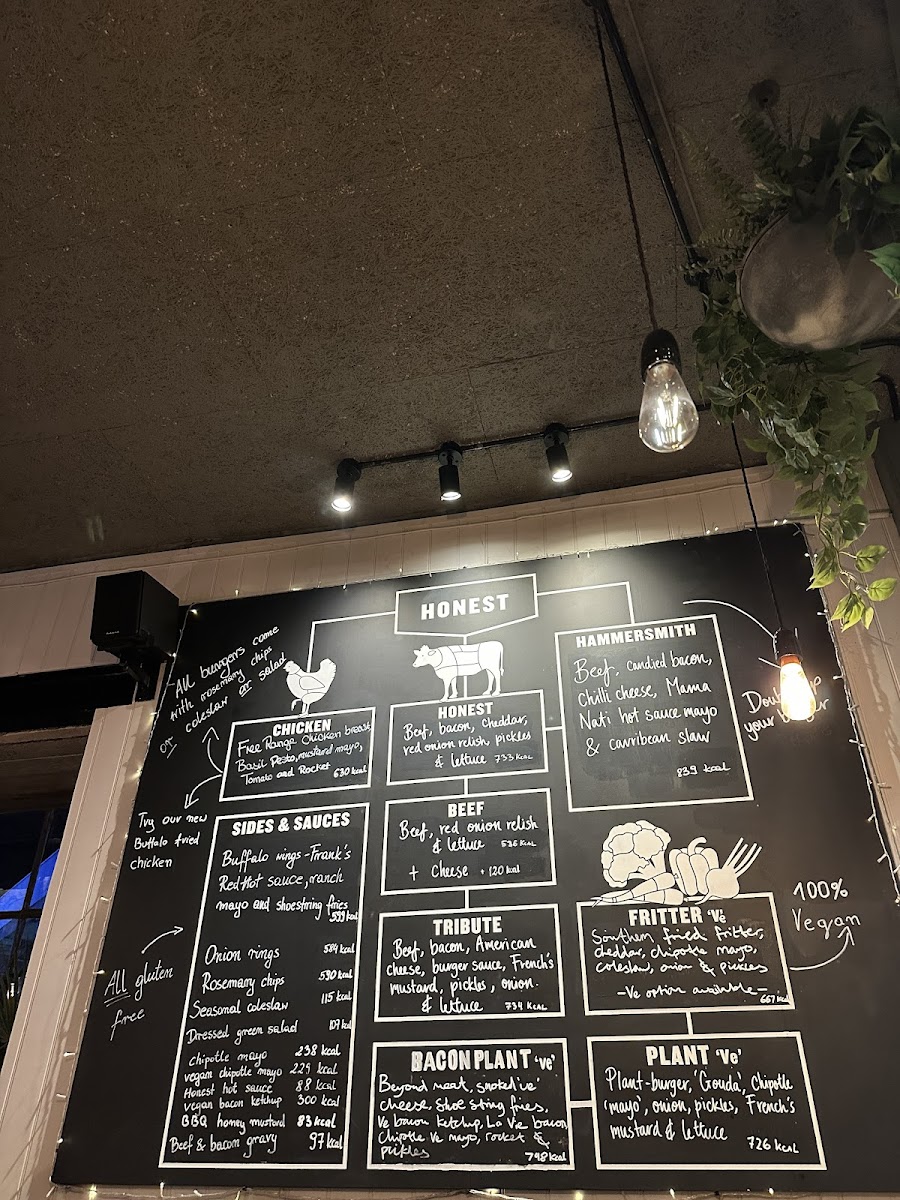 HONEST
All burgers come
with rosemary chips
or coleslaw or salad
CHICKEN
Free Range Chicken breast,
Basil Pesto, mustard mayo,
Tomato and Rocket 630 kcal
Try our new
Buffalo fried
chicken
SIDES & SAUCES
Buffalo wings - Frank's
RedHot sauce, ranch
mayo and shoestring fries
599 kcal
Onion rings 584 kcal
Rosemary chips 530 kcal
Seasonal coleslaw 115 kcal
Dressed green salad 107 kcal
Chipotle mayo 238 kcal
vegan chipotle mayo 229 kcal
Honest hot sauce 88 kcal
vegan bacon ketchup 300 kcal
BBQ honey mustard 83 kcal
Beef & bacon gravy 97 kcal
All gluten
free
HONEST
Beef, bacon, cheddar,
red onion relish, pickles
& lettuce 733 kcal
BEEF
Beef, red onion relish
& lettuce 536 kcal
+ Cheese + 120 kcal
TRIBUTE
Beef, bacon, American
cheese, burger sauce, French's
mustard, pickles, onion
& lettuce 734 kcal
BACON PLANT 've'
Beyond meat, smoked 've'
cheese, shoe string fries,
Ve bacon ketchup, La Vie bacon,
Chipotle Ve mayo, rocket &
pickles 798 kcal
HAMMERSMITH
Beef, candied bacon,
Chilli cheese, Mama
Nati hot sauce mayo
& carribean slaw
839 kcal
your
FRITTER 'Ve
Southern fried fritter,
cheddar, chipotle mayo,
coleslaw, onion & pickles
- Ve option available -
667 kcal
100%
Vegan
PLANT 'Ve'
Plant-burger, 'Gouda', Chipotle
'mayo', onion, pickles, French's
mustard & lettuce
726 kcal